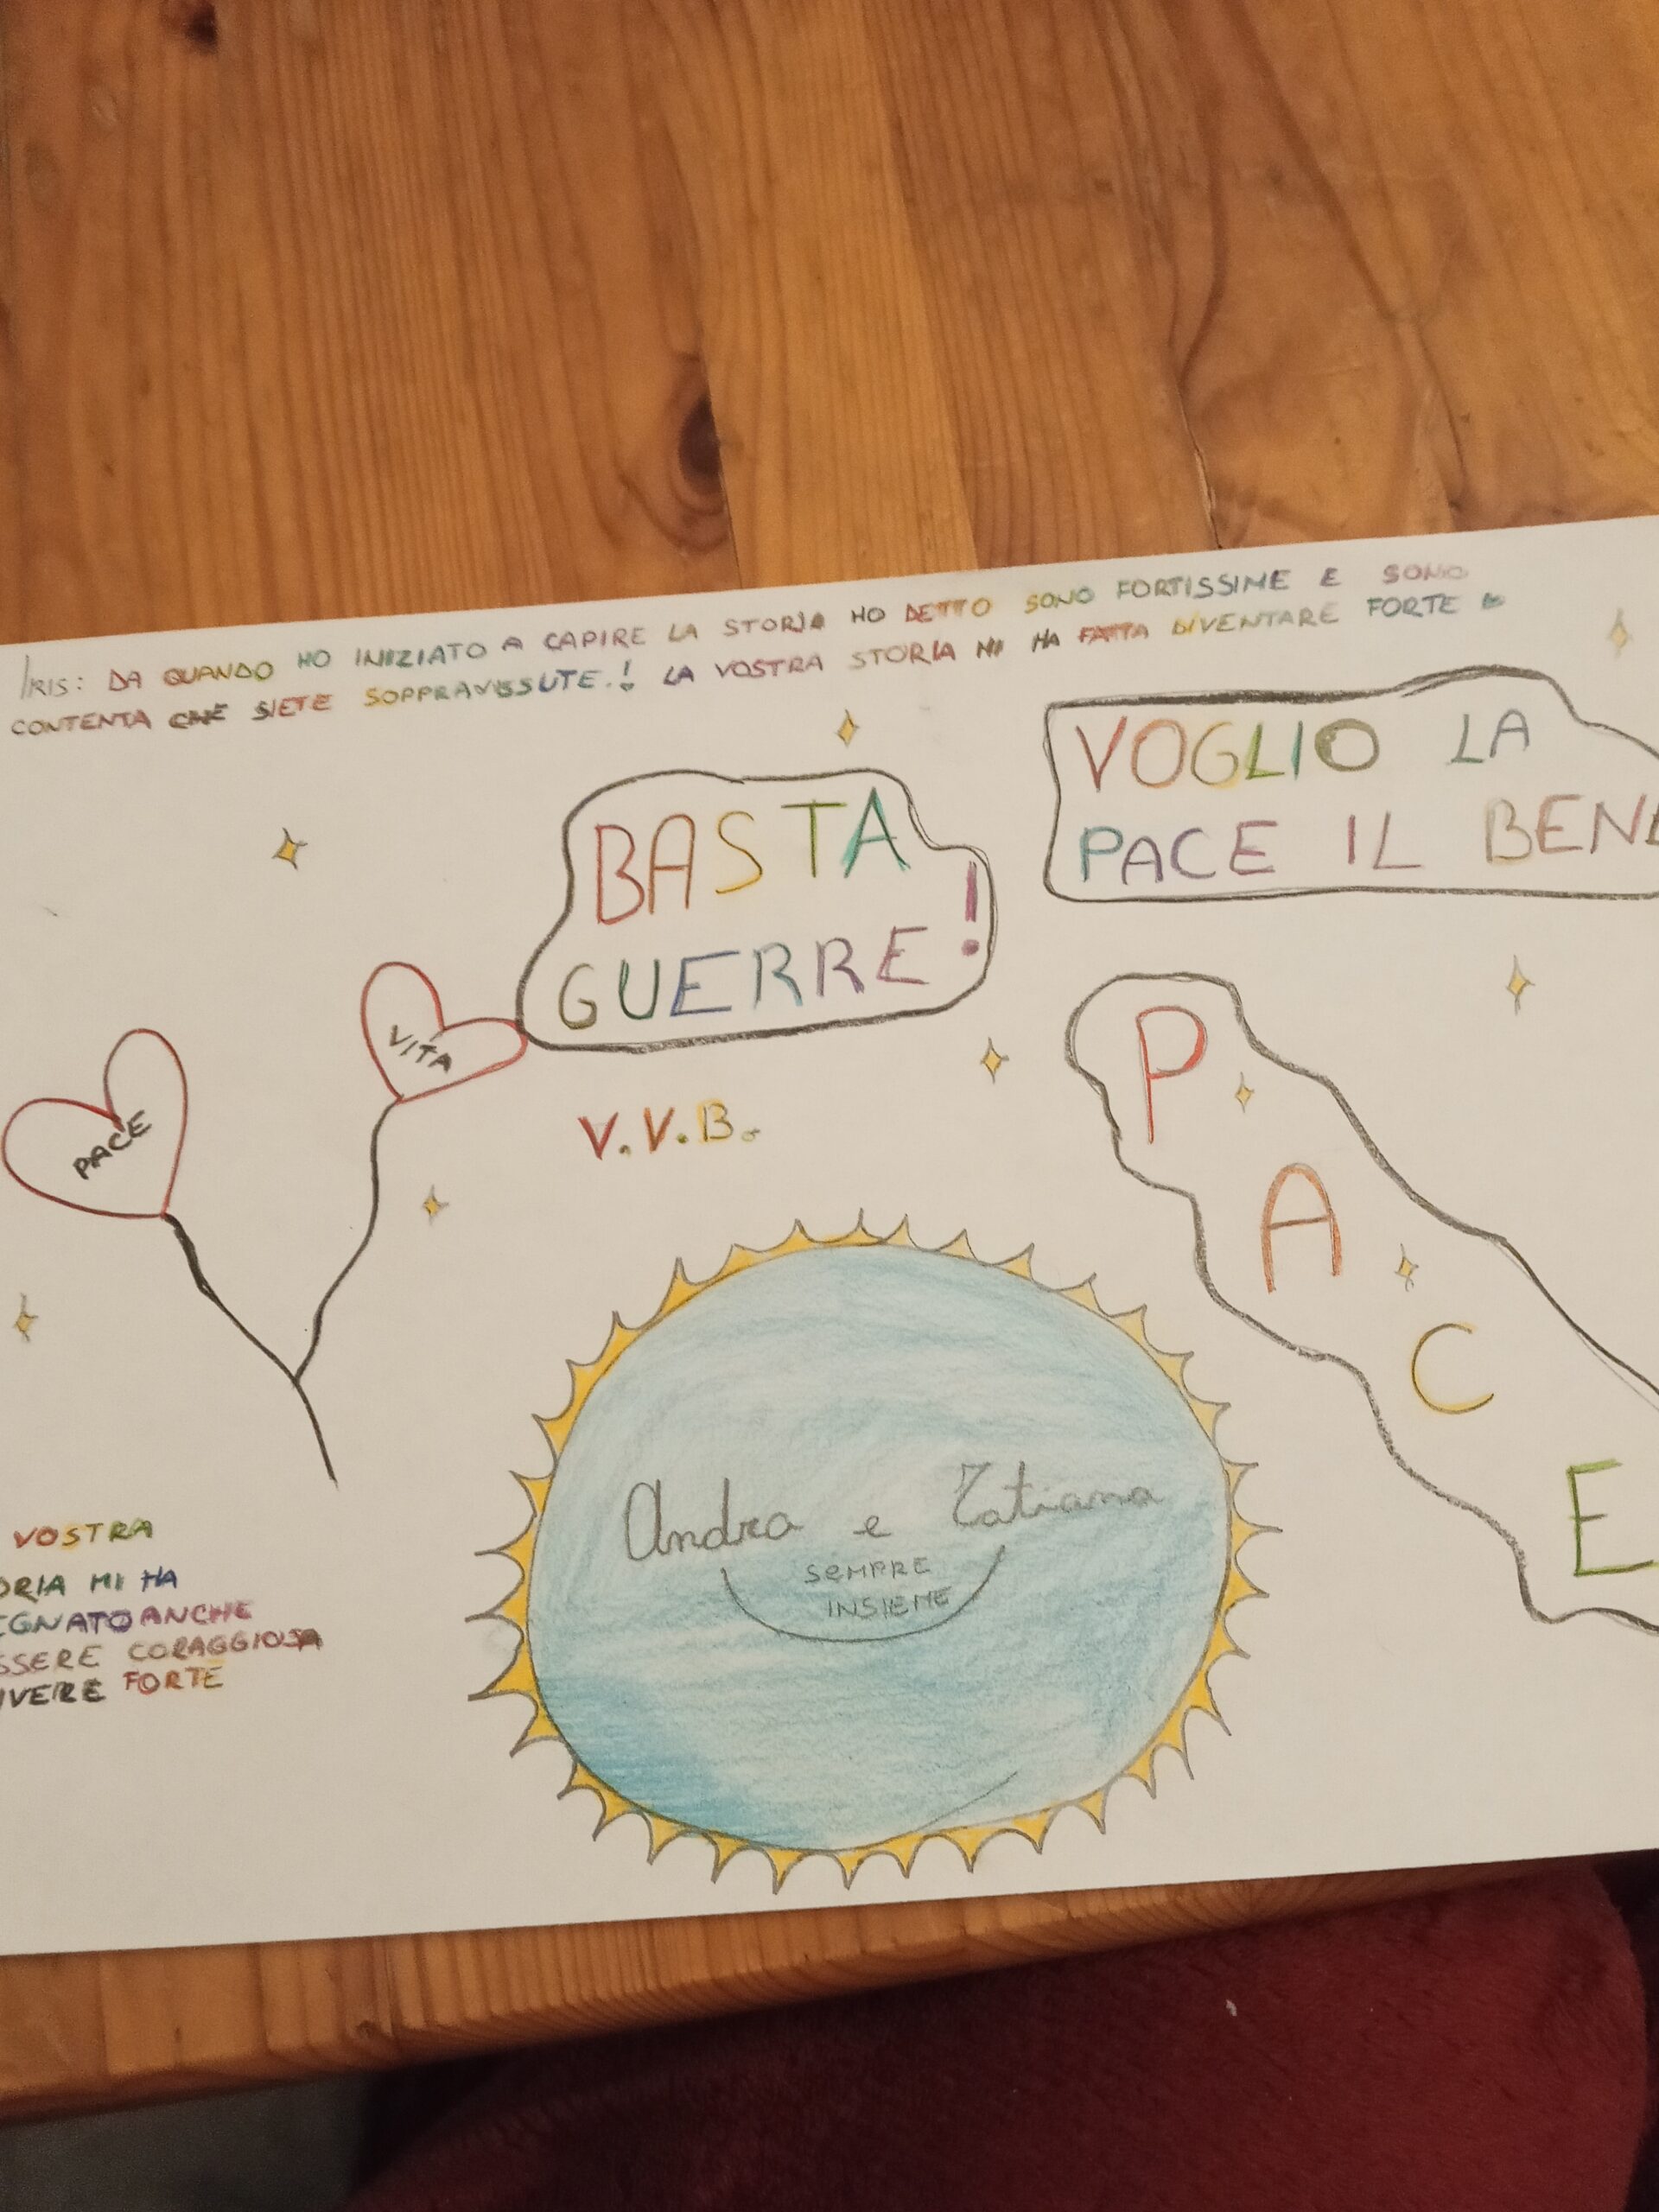 IRIS: DA QUANDO HO INIZIATO A CAPIRE LA STORIA HO DETTO SONO FORTISSIME E SONO
CONTENTA CHE SIETE SOPPRAVISSUTE.! LA VOSTRA STORIA MI HA FATTA DIVENTARE FORTE
VOGLIO LA
PACE IL BENE
BASTA
GUERRE!
VITA
PACE
V.V.B.
P
A
C
E
Andra e Tatiana
SEMPRE
INSIEME
VOSTRA
ORIA MI HA
EGNATO ANCHE
SSERE CORAGGIOSA
IVERE FORTE